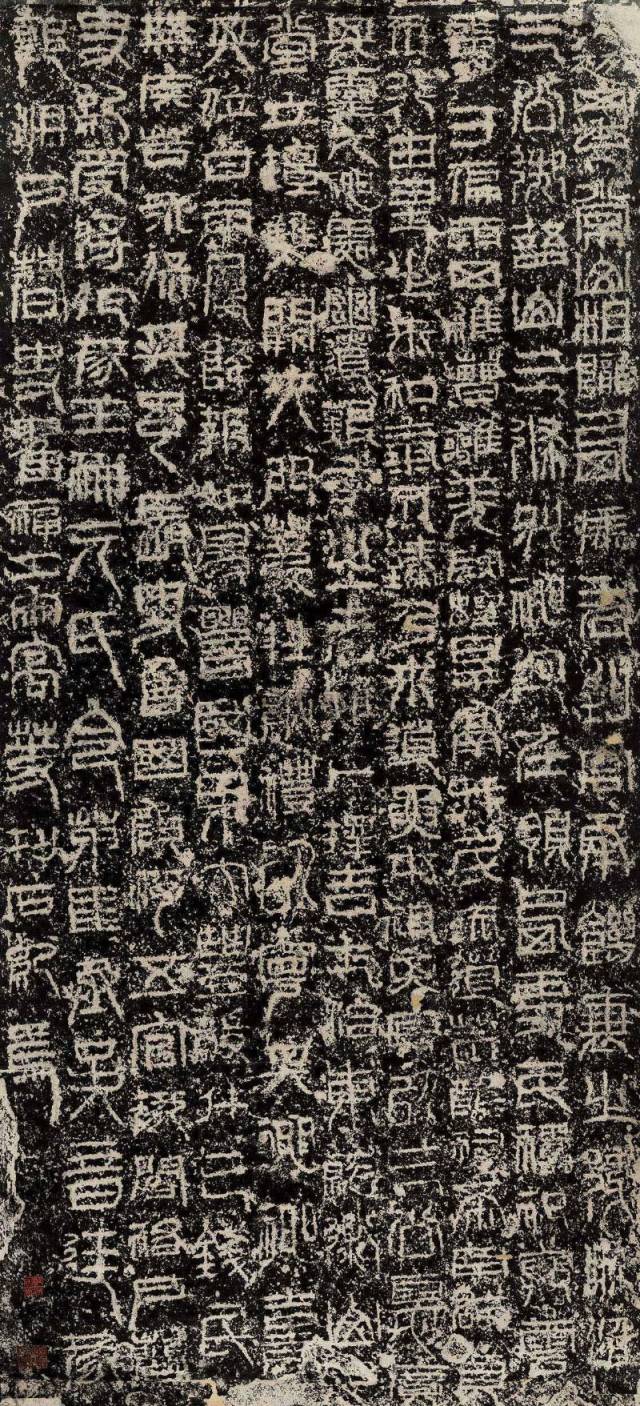 初四年常山相隴西馮君到官承饑衰之後惟
三公御語山三條別神迥在領西吏民禱祀興雲
膚寸徧雨四維遭離羌寇蝗旱鬲并民流道荒醮祠希罕奠
不行由是之來和氣不臻乃來道要本祖其原以三公德廣
其靈尤神處幽道艱存之者難卜擇吉治東就衡山起
堂立壇雙闕夾門薦牲納禮以寧其神神熹
其位甘雨屢降報如景響國界大豐穀斗三錢民
無疾苦永保其年長史魯國顏浮五官掾閻祐戶曹
史紀受將作掾王笧元氏令茆匡丞吳音廷掾
郭洪戶曹史翟福工宋高等刊石紀焉